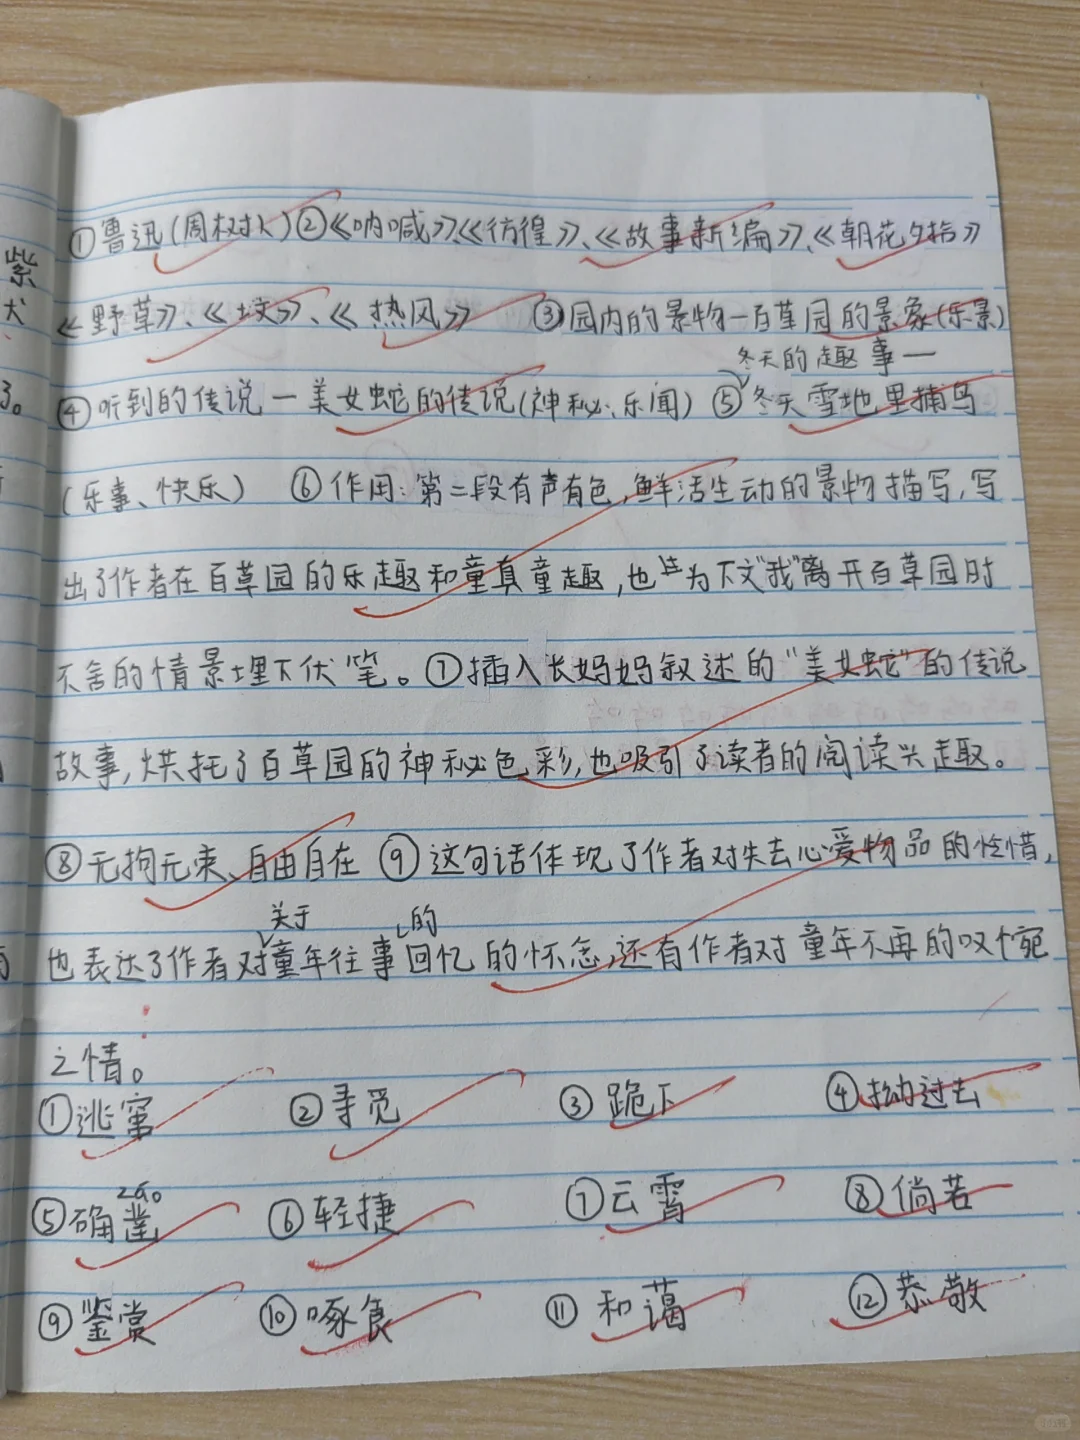 紫
犬
①鲁迅(周树人)②《呐喊》、《彷徨》、《故事新编》、《朝花夕拾》
《野草》、《坟》、《热风》 ③园内的景物一百草园的景象(乐景)
冬天的趣事一
④听到的传说一美女蛇的传说(神秘、乐闻) ⑤冬天雪地里捕鸟
(乐事、快乐) ⑥作用:第二段有声有色,鲜活生动的景物描写,写
出了作者在百草园的乐趣和童真童趣,也为下文"我"离开百草园时
不舍的情景埋下伏笔。⑦插入长妈妈叙述的"美女蛇"的传说
故事,烘托了百草园的神秘色彩,也吸引了读者的阅读兴趣。
⑧无拘无束、自由自在 ⑨这句话体现了作者对失去心爱物品的怜惜,
关于 的
也表达了作者对童年往事回忆的怀念,还有作者对童年不再的叹惋
之情。
①逃窜 ②寻觅 ③跪下 ④拗过去
záo
⑤确凿 ⑥轻捷 ⑦云霄 ⑧倘若
⑨鉴赏 ⑩啄食 ⑪和蔼 ⑫恭敬